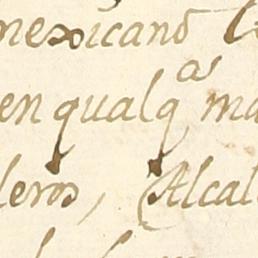 mexicano
en qualqᵃˢ ma
leros, Alcal